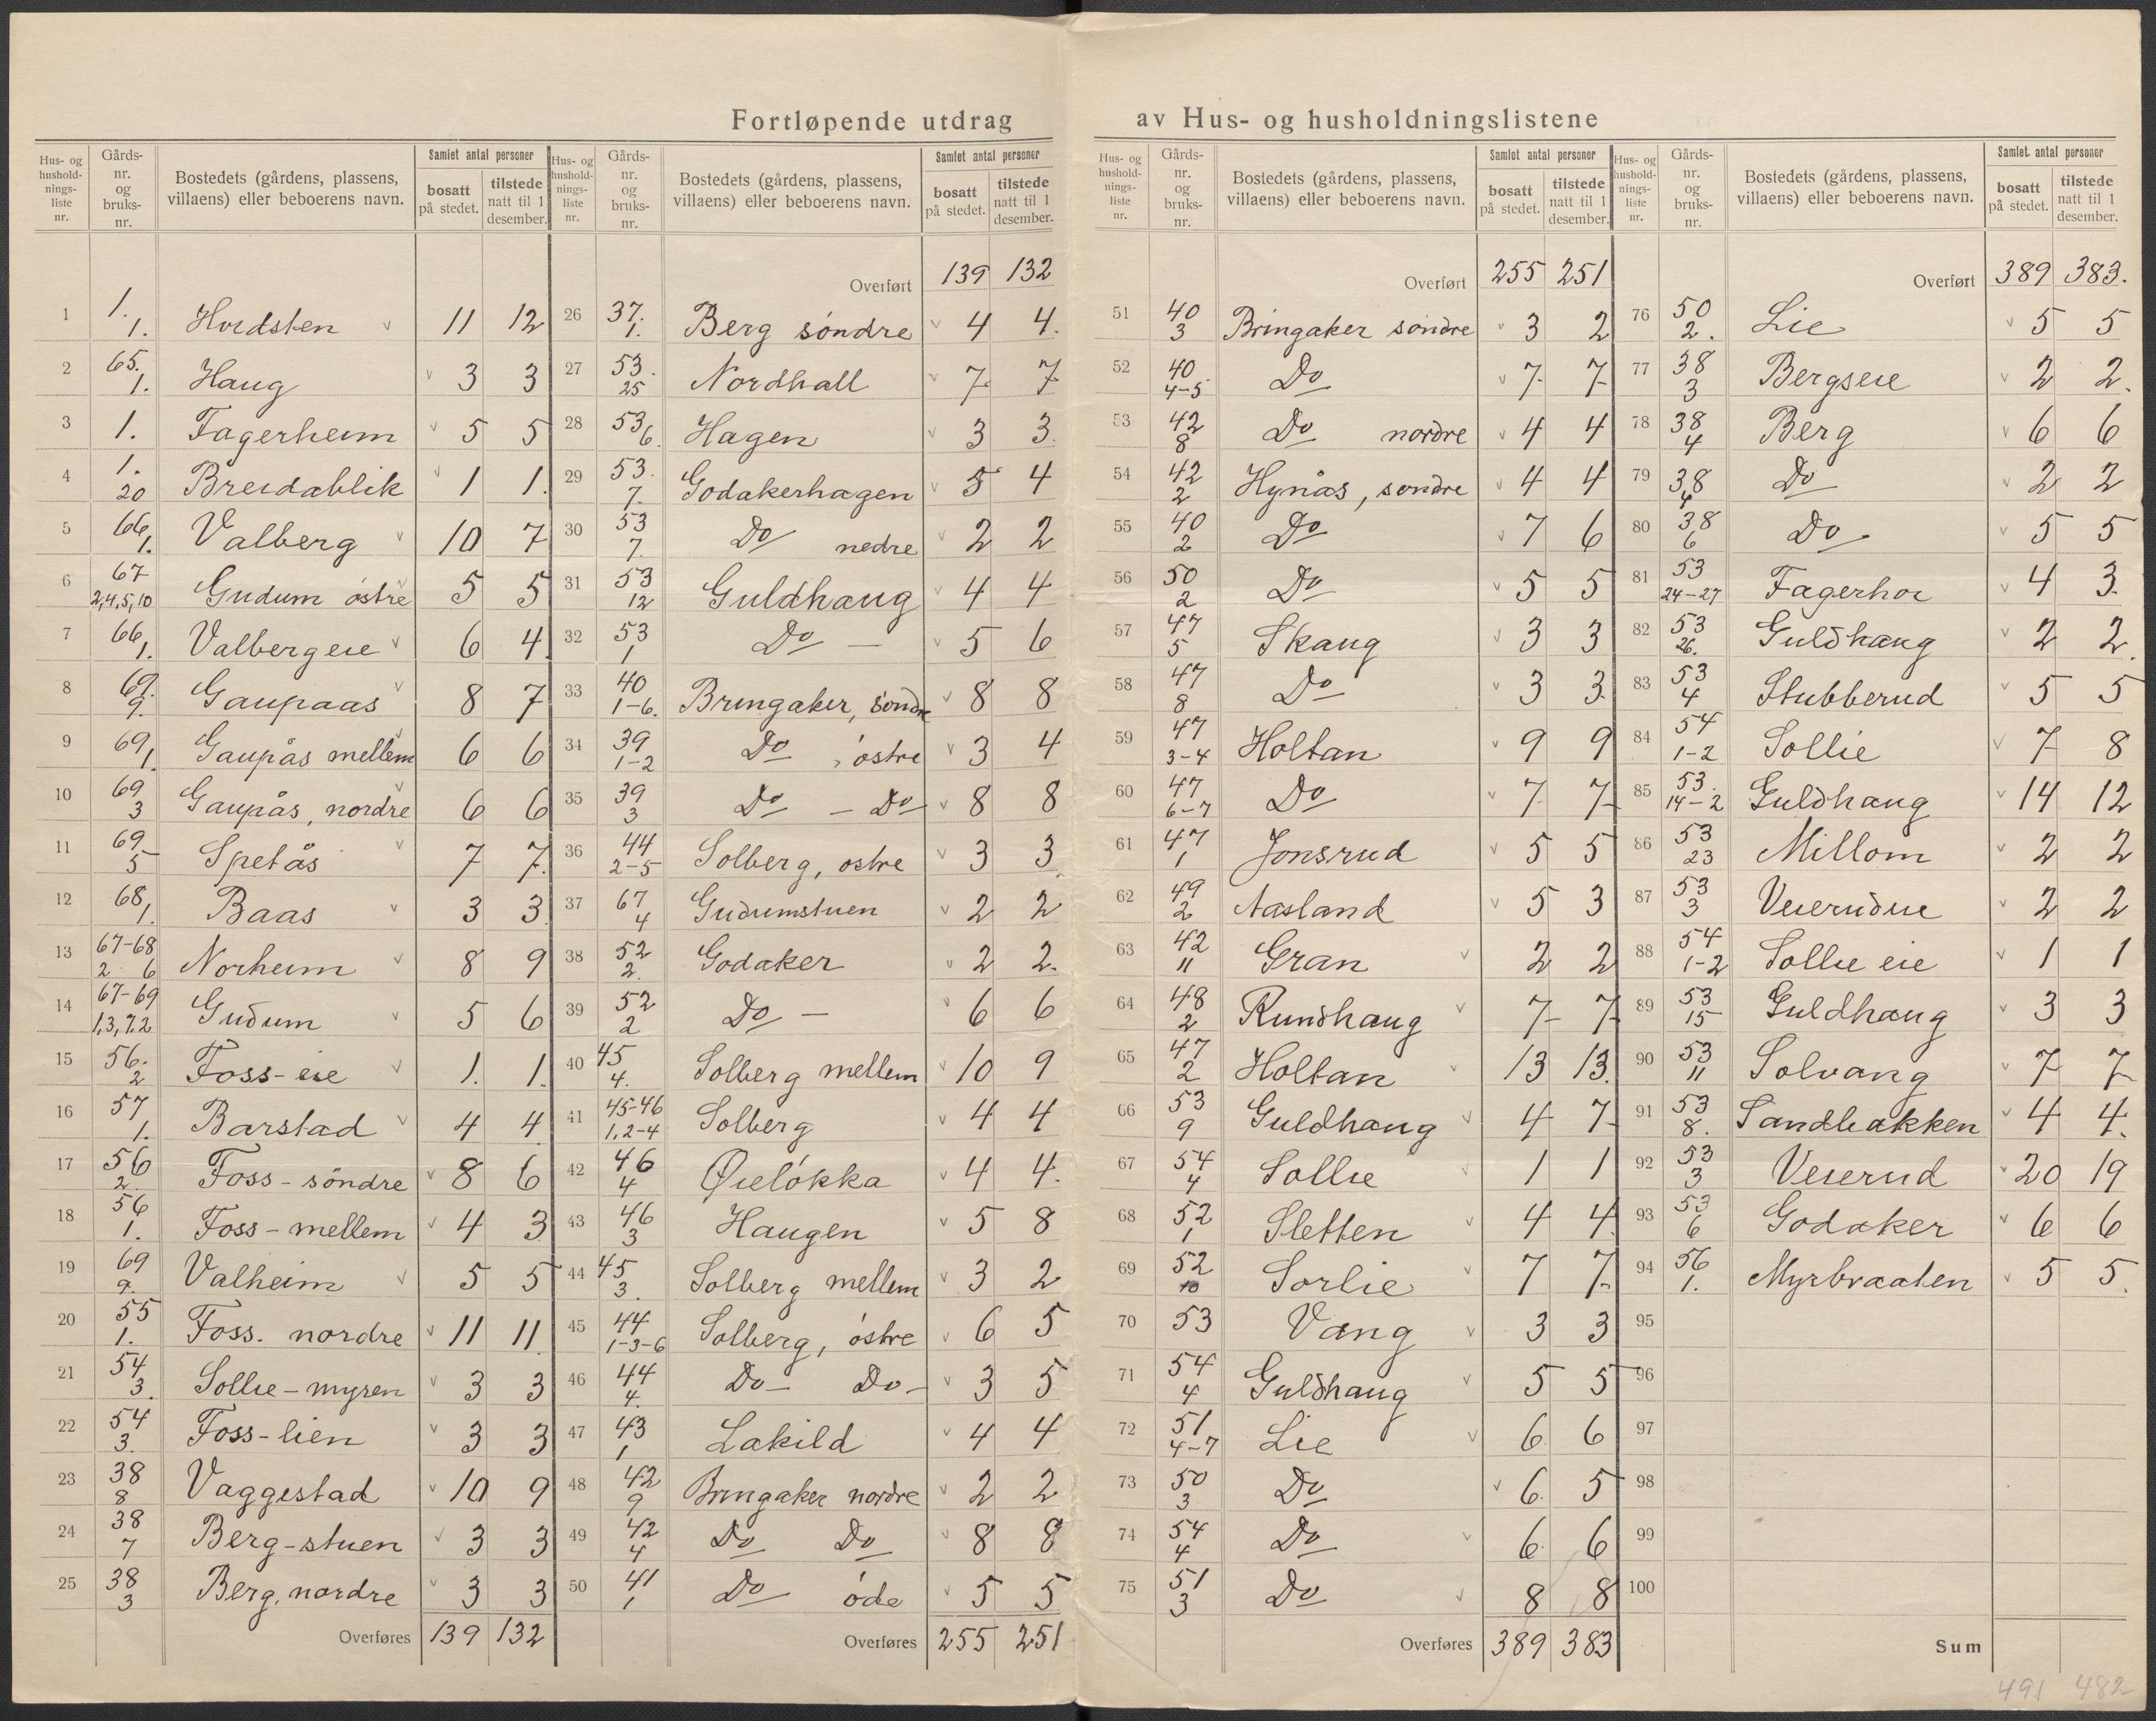 Fortløpende utdrag av Hus- og husholdningslistene
Hus- og husholdnings-liste nr. | Gårds-nr. og bruks-nr. | Bostedets (gårdens, plassens, villaens) eller beboerens navn. | Samlet antal personer bosatt på stedet. | tilstede natt til 1 desember.
1 | 1. 1. | Hvidsten | 11 | 12
2 | 65. 1. | Haug | 3 | 3
3 | 1. | Fagerheim | 5 | 5
4 | 1. 20 | Breidablik | 1 | 1.
5 | 66, 1. | Valberg | 10 | 7
6 | 67 2,4,5,10 | Gudum östre | 5 | 5
7 | 66, 1. | Valbergeie | 6 | 4
8 | 69. 9. | Gaupaas | 8 | 7
9 | 69, 1. | Gaupås mellem | 6 | 6
10 | 69 3 | Gaupås, nordre | 6 | 6
11 | 69 5 | Spetås | 7 | 7.
12 | 68, 1. | Baas | 3 | 3
13 | 67-68 2 6 | Norheim | 8 | 9
14 | 67-69 1,3,7.2 | Gudum | 5 | 6
15 | 56. 2 | Foss-eie | 1. | 1.
16 | 57 1. | Barstad | 4 | 4
17 | 56 2 | Foss-söndre | 8 | 6
18 | 56 1. | Foss-mellem | 4 | 3
19 | 69 9. | Valheim | 5 | 5
20 | 55 1. | Foss. nordre | 11 | 11
21 | 54 3. | Sollie-myren | 3 | 3
22 | 54 3. | Foss-lien | 3 | 3
23 | 38 8 | Vaggestad | 10 | 9
24 | 38 7 | Berg-stuen | 3 | 3
25 | 38 3 | Berg, nordre | 3 | 3
Overføres 139 132
Hus- og husholdnings-liste nr. | Gårds-nr. og bruks-nr. | Bostedets (gårdens, plassens, villaens) eller beboerens navn. | Samlet antal personer bosatt på stedet. | tilstede natt til 1 desember.
Overført 139 132
26 | 37. 1. | Berg söndre | 4 | 4.
27 | 53. 25 | Nordhall | 7 | 7
28 | 53, 6. | Hagen | 3 | 3.
29 | 53. 7. | Godakerhagen | 5 | 4
30 | 53 7. | Do nedre | 2 | 2
31 | 53 12 | Guldhaug | 4 | 4
32 | 53 1 | Do — | 5 | 6
33 | 40 1-6. | Bringaker, söndre | 8 | 8
34 | 39 1-2 | Do , östre | 3 | 4
35 | 39 3 | Do — Do | 8 | 8
36 | 44 2-5 | Solberg, ostre | 3 | 3
37 | 67 4 | Gudumstuen | 2 | 2
38 | 52 2. | Godaker | 2 | 2.
39 | 52 2 | Do — | 6 | 6
40 | 45 4. | Solberg mellem | 10 | 9
41 | 45-46 1,2-4 | Solberg | 4 | 4
42 | 46 4 | Øieløkka | 4 | 4.
43 | 46 3 | Haugen | 5 | 8
44 | 45 3. | Solberg mellem | 3 | 2
45 | 44 1-3-6 | Solberg, östre | 6 | 5
46 | 44 4. | Do — Do — | 3 | 5
47 | 43 1 | Lakild | 4 | 4
48 | 42 9 | Bringaker nordre | 2 | 2
49 | 42 4 | Do Do | 8 | 8
50 | 41 1 | Do öde | 5 | 5
Overføres 255 251
Hus- og husholdnings-liste nr. | Gårds-nr. og bruks-nr. | Bostedets (gårdens, plassens, villaens) eller beboerens navn. | Samlet antal personer bosatt på stedet. | tilstede natt til 1 desember.
Overført 255 251
51 | 40 3 | Bringaker söndre | 3 | 2
52 | 40 4-5 | Do | 7 | 7
53 | 42 8 | Do nordre | 4 | 4
54 | 42 2 | Hynås, sondre | 4 | 4
55 | 40 2 | Do | 7 | 6
56 | 50 2 | Do | 5 | 5
57 | 47 5 | Skaug | 3 | 3
58 | 47 8 | Do | 3 | 3.
59 | 47 3-4 | Holtan | 9 | 9
60 | 47 6-7 | Do | 7 | 7
61 | 47 1 | Jonsrud | 5 | 5
62 | 49 2 | Aasland | 5 | 3
63 | 42 11 | Gran | 2 | 2
64 | 48 2 | Rundhaug | 7 | 7
65 | 47 2 | Holtan | 13 | 13.
66 | 53 9 | Guldhaug | 4 | 7
67 | 54 4 | Sollie | 1 | 1
68 | 52 1 | Sletten | 4 | 4
69 | 52 10 | Sorlie | 7 | 7
70 | 53 | Vang | 3 | 3
71 | 54 4 | Guldhaug | 5 | 5
72 | 51 4-7 | Lie | 6 | 6
73 | 50 3 | Do | 6 | 5
74 | 54 4 | Do | 6 | 6
75 | 51 3 | Do | 8 | 8
Overføres 389 383
Hus- og husholdnings-liste nr. | Gårds-nr. og bruks-nr. | Bostedets (gårdens, plassens, villaens) eller beboerens navn. | Samlet antal personer bosatt på stedet. | tilstede natt til 1 desember.
Overført 389 383.
76 | 50 2. | Lie | 5 | 5
77 | 38 3 | Bergseie | 2 | 2.
78 | 38 4 | Berg | 6 | 6
79 | 38 4 | Do | 2 | 2
80 | 38 6 | Do | 5 | 5
81 | 53 24-27 | Fagerhoi | 4 | 3.
82 | 53 26. | Guldhaug | 2 | 2.
83 | 53 4 | Stubberud | 5 | 5
84 | 54 1-2 | Sollie | 7 | 8
85 | 53. 14-2 | Guldhaug | 14 | 12
86 | 53 23 | Millom | 2 | 2
87 | 53 3 | Veierudeie | 2 | 2
88 | 54 1-2 | Sollie eie | 1 | 1
89 | 53 15 | Guldhaug | 3 | 3
90 | 53 11 | Solvang | 7 | 7
91 | 53 8. | Sandbakken | 4 | 4.
92 | 53 3 | Veierud | 20 | 19
93 | 53 6 | Godaker | 6 | 6
94 | 56 1. | Myrbraaten | 5 | 5.
95
96
97
98
99
100
Sum
491 482